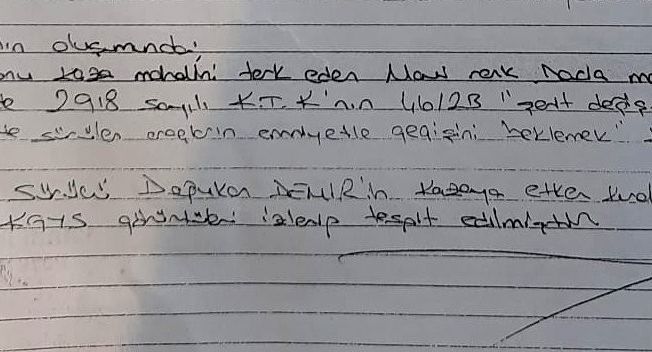 ın oluşumunda;
onu kaza mahalini terk eden Mavi renk Dacia m
2918 sayılı K.T.K'nın 46/2B "şerit değiş
te sürülen araçların emniyetle geçişini beklemek"
Sürücü Dapukan DEMİR'in kazaya etken kural
KGYS görüntüleri izlenip tespit edilmiştir